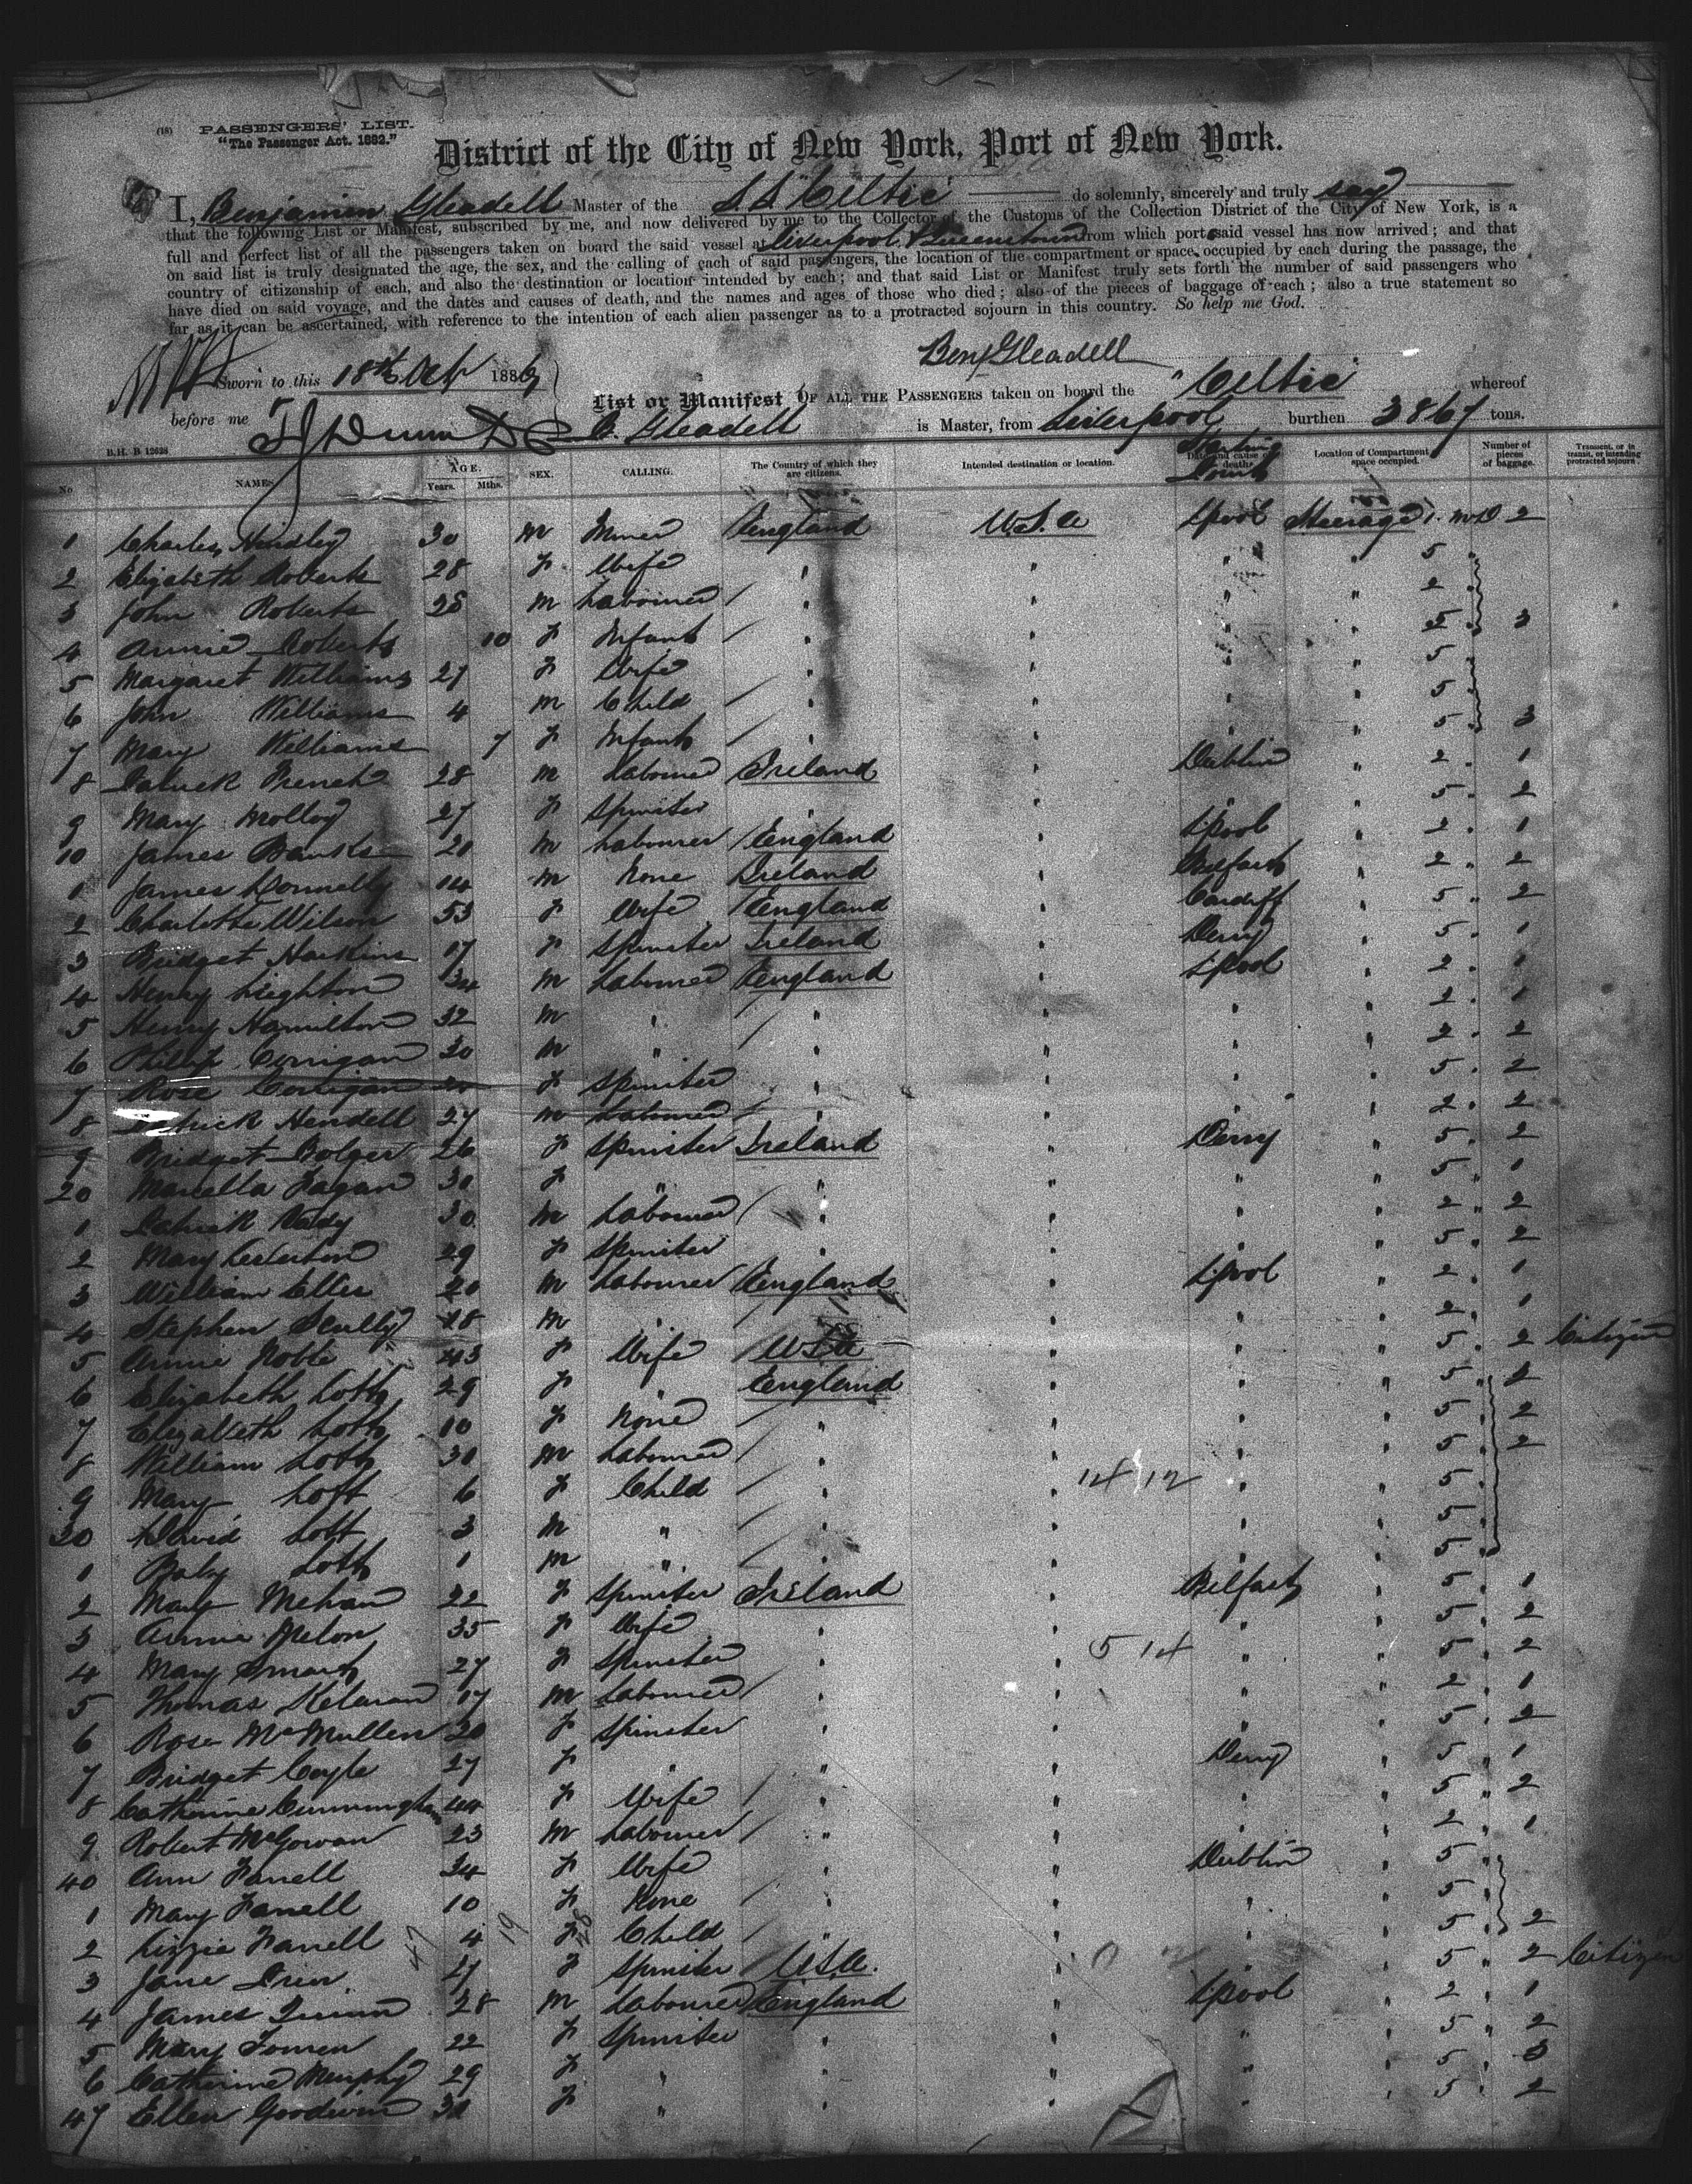 (18) PASSENGERS' LIST.
"The Passenger Act. 1882."
District of the City of New York, Port of New York.
I, Benjamin Gleadell Master of the S.S "Celtic" do solemnly, sincerely and truly say
that the following List or Manifest, subscribed by me, and now delivered by me to the Collector of the Customs of the Collection District of the City of New York, is a
full and perfect list of all the passengers taken on board the said vessel at Liverpool & Queenstown from which port said vessel has now arrived; and that
on said list is truly designated the age, the sex, and the calling of each of said passengers, the location of the compartment or space occupied by each during the passage, the
country of citizenship of each, and also the destination or location intended by each; and that said List or Manifest truly sets forth the number of said passengers who
have died on said voyage, and the dates and causes of death, and the names and ages of those who died; also of the pieces of baggage of each; also a true statement so
far as it can be ascertained, with reference to the intention of each alien passenger as to a protracted sojourn in this country. So help me God.
Benj Gleadell
Sworn to this 18th Oct 188
before me
List or Manifest OF ALL THE PASSENGERS taken on board the "Celtic" whereof
B. Gleadell is Master, from Liverpool burthen 3867 tons.
B.H. B 12628
No NAMES AGE. Years. Mths. SEX. CALLING. The Country of which they are citizens. Intended destination or location. Date and cause of death. Location of Compartment space occupied. Number of pieces of baggage. Transient, or in transit, or intending protracted sojourn.
1 Charles Hindley 30 M Miner England U.S.A L'pool Steerage 1. 2
2 Elizabeth Roberts 28 F Wife " " " " 5 "
3 John Roberts 28 M Labourer " " " " 2 "
4 Annie Roberts 10 F Infant " " " " 5 " 3
5 Margaret Williams 27 F Wife " " " " 5 "
6 John Williams 4 M Child " " " " 5 "
7 Mary Williams 7 F Infant " " " " 5 " 3
8 Patrick French 28 M Labourer Ireland " Dublin " 2 " 1
9 Mary Molloy 27 F Spinster " " " " 5 " 2
10 James Banks 21 M Labourer England " L'pool " 2 " 1
1 James Donnelly 14 M None Ireland " Belfast " 2 " 2
2 Charlotte Wilson 53 F Wife England " Cardiff " 5 " 2
3 Bridget Harkins 17 F Spinster Ireland " Derry " 5 " 1
4 Henry Leighton 34 M Labourer England " L'pool " 2 " 1
5 Henry Hamilton 32 M " " " " " 2 " 1
6 Corrigan 30 M " " " " " 2 " 2
7 Rose Corrigan F Spinster " " " " 5 " 2
8 Hendell 27 M Labourer " " " " 2 " 2
9 Bridget Bolger 26 F Spinster Ireland " Derry " 5 " 2
20 Mariella Fagan 30 F " " " " " 5 " 1
1 Patrick 30 M Labourer " " " " 2 " 2
2 Mary 29 F Spinster " " " " 5 " 2
3 William Ellis 20 M Labourer England " L'pool " 2 " 1
4 Stephen Scully 28 M " " " " " 2 " 1
5 Annie Noble 43 F Wife U.S.A " " " 5 " 2 Citizen
6 Elizabeth Lott 29 F " England " " " 5 " 2
7 Elizabeth Lott 10 F None " " " " 5 " 2
8 William Lott 30 M Labourer " " " " 5 " 2
9 Mary Lott 6 F Child " " 14 12 " " 5 "
30 David Lott 3 M " " " " " 5 "
1 Baby Lott 1 M " " " " " 5 "
2 Mary Mehan 22 F Spinster Ireland " Belfast " 5 " 1
3 Annie 35 F Wife " " " " 5 " 2
4 Mary Smart 27 F Spinster " " 5 14 " " 5 " 2
5 Thomas 17 M Labourer " " " " 2 " 1
6 Rose McMullen 20 F Spinster " " " " 5 " 2
7 Bridget Coyle 27 F " " " Derry " 5 " 1
8 Catherine Cunningham 44 F Wife " " " " 5 " 2
9 Robert McGowan 23 M Labourer " " " " 2 " 1
40 Ann Farrell 34 F Wife " " Dublin " 5 "
1 Mary Farrell 10 F None " " " " 5 "
2 Lizzie Farrell 4 F Child " " " " 5 " 2
3 Jane 21 F Spinster U.S.A. " " " 5 " 2 Citizen
4 James Quinn 28 M Labourer England " L'pool " 2 " 1
5 Mary 22 F Spinster " " " " 5 " 2
6 Catherine Murphy 29 F " " " " " 5 " 3
47 Ellen Goodwin 30 F " " " " " 5 " 2